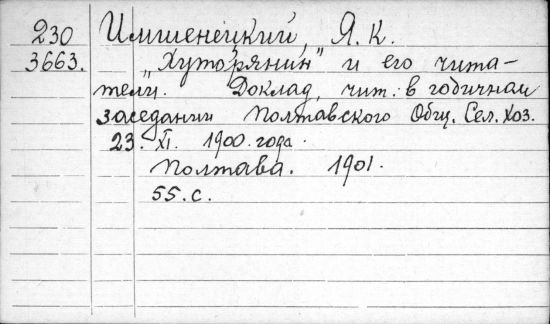 230 Имшенецкий, Я. К.
3663. „Хуторянин" и его чита-
тели. Доклад, чит. в годичном
заседании Полтавского Общ. Сел. Хоз.
23. XI. 1900 года.
Полтава. 1901.
55. с.